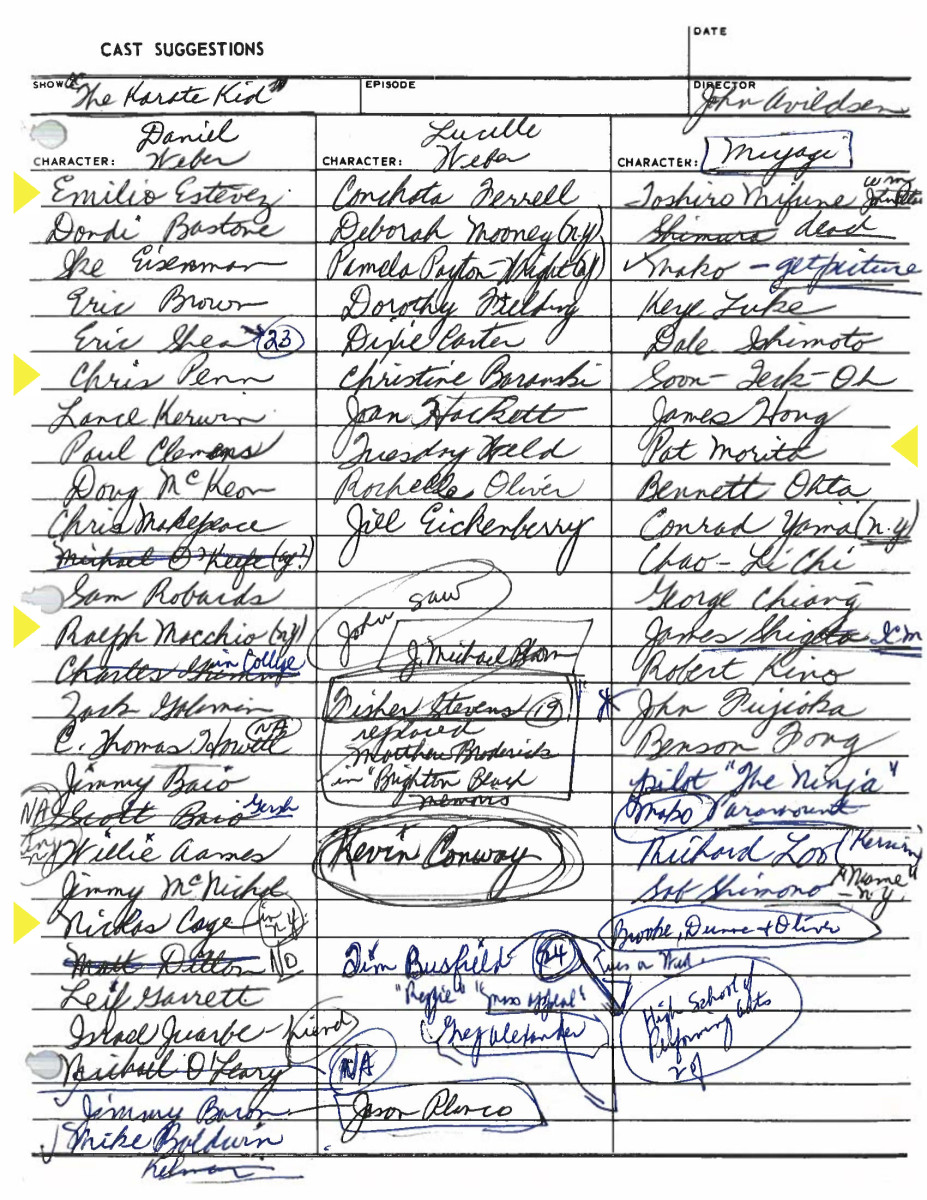 CAST SUGGESTIONS
DATE
SHOW "The Karate Kid"
EPISODE
DIRECTOR John Avildsen
CHARACTER: Daniel Weber
Emilio Estevez
Dondi Bastone
Ike Eisenman
Eric Brown
Eric Shea 23
Chris Penn
Lance Kerwin
Paul Clemens
Doug McKeon
Chris Makepeace
Michael O'Keefe
Sam Robards
Ralph Macchio (ny)
Charles in College
Zack
C. Thomas Howell N/A
Jimmy Baio
NA Scott Baio Gersh
Willie Aames
Jimmy McNichol
Nickas Cage in N.Y.
Matt Dillon NO
Leif Garrett
Israel Juarbe - friend
Michael O'Leary N/A
Jimmy Baron
Mike Baldwin
CHARACTER: Lucille Weber
Conchata Ferrell
Deborah Mooney (ny)
Pamela Payton-Wright (ny)
Dorothy Fielding
Dixie Carter
Christine Baranski
Joan Hackett
Tuesday Weld
Rochelle Oliver
Jill Eickenberry
John saw
J. Michael Bloom
Fisher Stevens 19
replaced
Matthew Broderick
in "Brighton Beach
Memoirs
Kevin Conway
Tim Busfield 24
"Mass Appeal"
Greg Alexander
Jason
CHARACTER: Miyagi
Toshiro Mifune
Shimura dead
Mako - get picture
Keye Luke
Dale Ishimoto
Soon-Teck-Oh
James Hong
Pat Morita
Bennett Ohta
Conrad Yama (n.y)
Chao-Li Chi
George Chiang
James Shigeta ICM
Robert Kino
John Fujioka
Benson Fong
pilot "The Ninja"
Mako Paramount
Richard Loo
Sab Shimono - N.Y.
Brooke, Dunne & Oliver
Tues or Wed.
High School of
Performing Arts